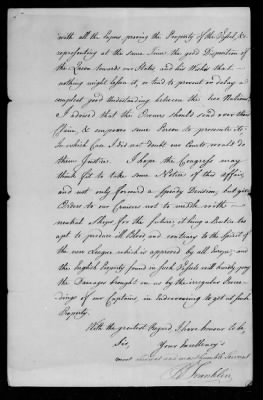 with all the Papers proving the Property of the Vessel, &
representing at the same Time the good Disposition of
the Queen towards our States and his Wishes that
nothing might lessen it, or tend to prevent or delay a
compleat good Understanding between the two Nations,
I advised that the Owners should send over their
Claim, & empower some Person to prosecute it. In
which Case I did not doubt our Courts would do
them Justice. I hope the Congress may
think fit to take some Notice of this affair,
and not only forward a Speedy Decision, but give
Orders to our Cruisers not to meddle with
neutral Ships for the future, it being a Practice
apt to produce ill Blood, and contrary to the Spirit of
the new League which is approved by all Europe; and
the English Property found in such Vessels will hardly pay
the Damages brought on us by the irregular Procee-
dings of our Captains, in endeavouring to get at such
Property.
With the greatest Regard, I have honour to be,
Sir, Your Excellency's
most obedient and most humble Servant
B Franklin